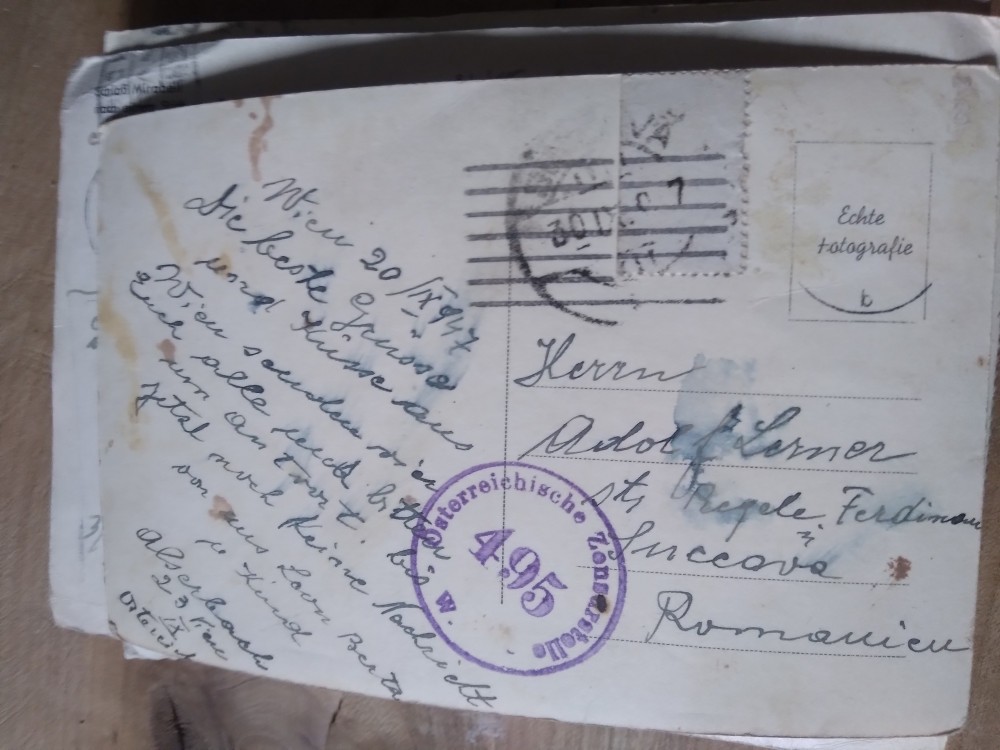 Schloß Mirabell
Wien 20/IX 947
Die beste Grüsse
und Küsse aus
Wien senden wir
Euch alle und bitten
um antwort bis
jetzt noch keine Nachricht
von aus Leon Berta
u Kind
Alserbach
23
IX Wien
Echte
Fotografie
Herrn
Adolf Lerner
str Regele Ferdinan
Succeava
Romanien
Österreichische Zensurstelle
W.
495
30.IX.